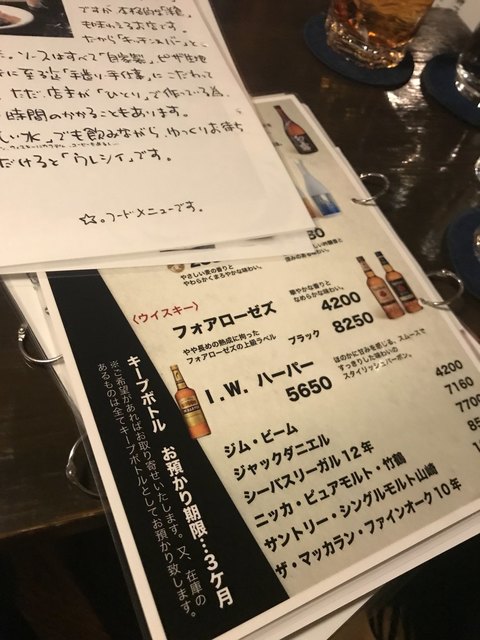 ですが本格的な「糧」
も味わえるお店です。
だから「キッチンバー」と
ソースはすべて「自家製」ピザ生地
に至る迄「手造り・手仕事」にこだわって
ただ店主が「ひとり」で作っている為、
時間のかかることもあります。
しい水」でも飲みながら、ゆっくりお待ち
だけると「ウレシイ」です。
☆。フードメニューです。
やさしい麦の香りと
やわらかくまろやかな味わい。
〈ウイスキー〉
フォアローゼズ
華やかな香りと
なめらかな味わい。
4200
やや長めの熟成に拘った
フォアローゼズの上級ラベル
ブラック 8250
I.W. ハーパー
5650
ほのかに甘みを感じる、スムースで
すっきりした味わいの
スタイリッシュバーボン。
ジム・ビーム 4200
ジャックダニエル 7160
シーバスリーガル12年 7700
ニッカ・ピュアモルト・竹鶴
サントリー・シングルモルト山崎
ザ・マッカラン・ファインオーク10年
キープボトル お預かり期限…3ケ月
※ご希望があればお取り寄せいたします。又、在庫の
あるものは全てキープボトルとしてお預かり致します。